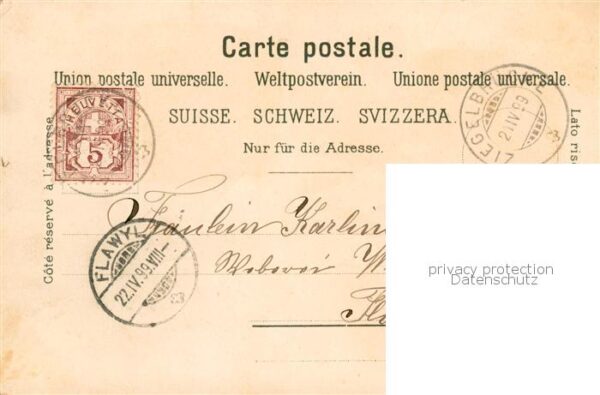 Carte postale.
Union postale universelle. Weltpostverein. Unione postale universale.
SUISSE. SCHWEIZ. SVIZZERA.
Nur für die Adresse.
Côté réservé à l'adresse
Lato rise
HELVETIA
5
ZIEGELBRÜ
21.IV.99
FLAWYL
22.IV.99.VIII
Fräulein Karlin
Weberei W
Fl
privacy protection
Datenschutz